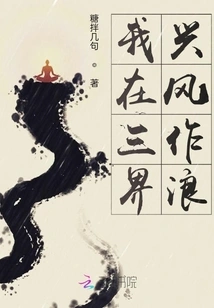 我在三界
兴风作浪
糖拌几句。著
书院